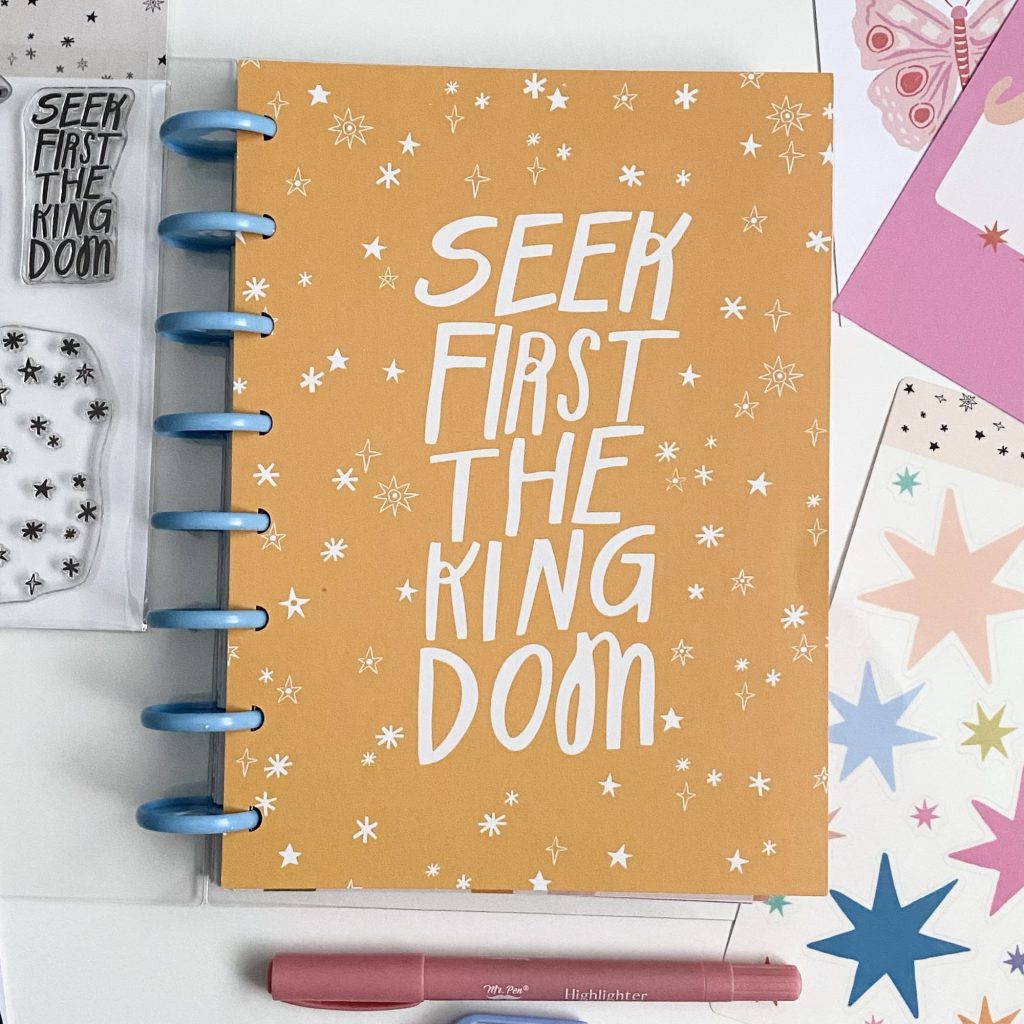 SEEK
FIRST
THE
KING
DOM
SEEK
FIRST
THE
KING
DOM
Mr. Pen® Highlighter